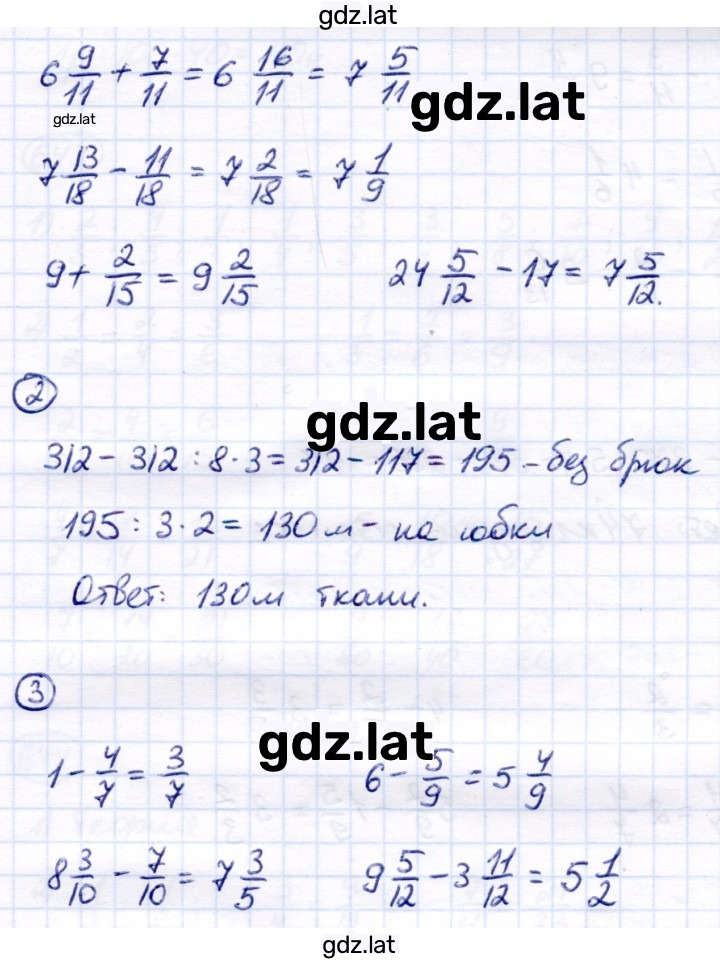 gdz.lat
6 9/11 + 7/11 = 6 16/11 = 7 5/11
gdz.lat
gdz.lat
7 13/18 - 11/18 = 7 2/18 = 7 1/9
9 + 2/15 = 9 2/15 24 5/12 - 17 = 7 5/12.
2
gdz.lat
312 - 312 : 8 · 3 = 312 - 117 = 195 - без брюк
195 : 3 · 2 = 130 м - на юбки
Ответ: 130м ткани.
3
gdz.lat
1 - 4/7 = 3/7 6 - 5/9 = 5 4/9
8 3/10 - 7/10 = 7 3/5 9 5/12 - 3 11/12 = 5 1/2
gdz.lat